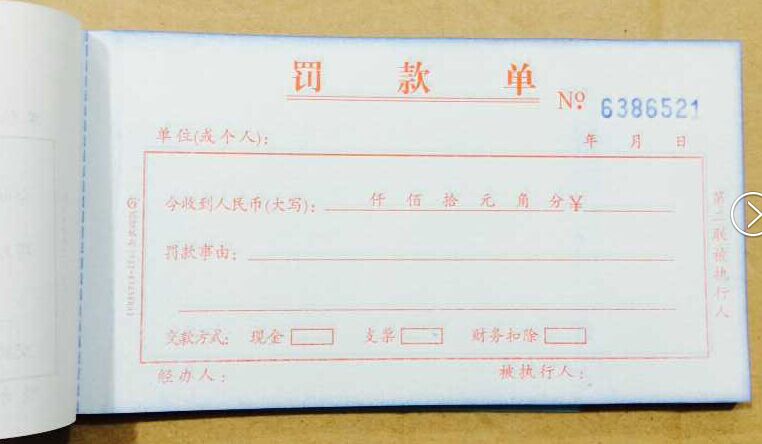 罚款单
№ 6386521
单位(或个人): 年 月 日
今收到人民币(大写): 仟 佰 拾 元 角 分 ¥
罚款事由:
交款方式: 现金 支票 财务扣除
经办人: 被执行人:
第二联被执行人